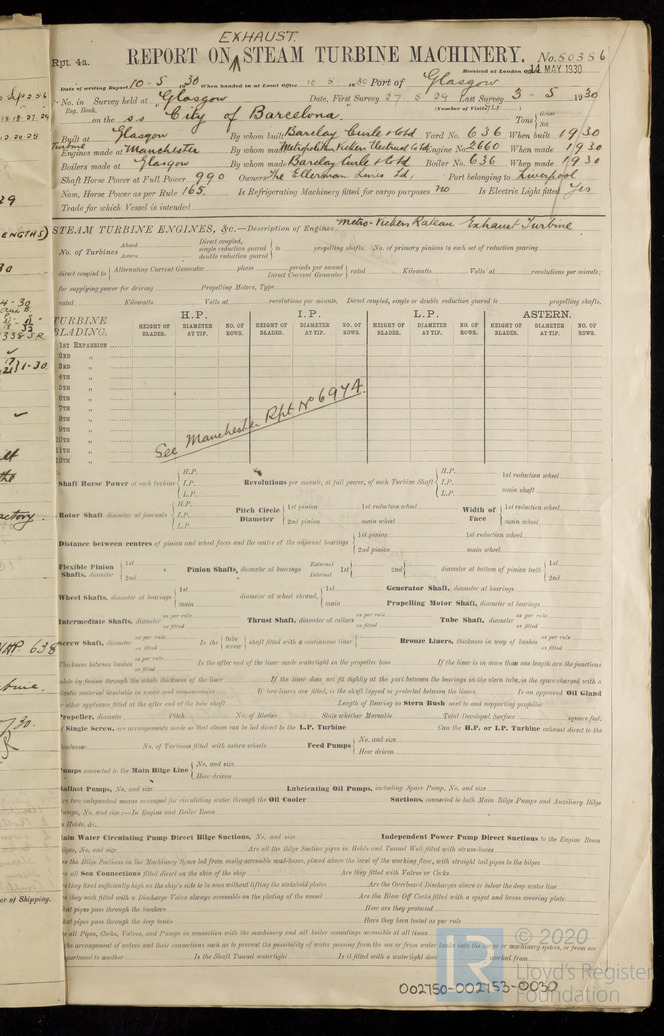 EXHAUST.
Rpt. 4a.
REPORT ON STEAM TURBINE MACHINERY. No. 50356
Received at London Office 14 MAY 1930
Date of writing Report 10-5-1930 When handed in at Local Office 10 5 1930 Port of Glasgow
No. in Reg. Book. Survey held at Glasgow Date, First Survey 27-5-29 Last Survey 3-5-1930
(Number of Visits
on the ss City of Barcelona. Tons { Gross Net
Built at Glasgow By whom built Barclay Curle & Co Ltd Yard No. 636 When built 1930
Turbine Engines made at Manchester By whom made Metropolitan Vickers Electrical Co Ltd Engine No. 2660 When made 1930
Boilers made at Glasgow By whom made Barclay Curle & Co Ltd Boiler No. 636 When made 1930
Shaft Horse Power at Full Power 990 Owners The Ellerman Lines Ltd, Port belonging to Liverpool
Nom. Horse Power as per Rule 165. Is Refrigerating Machinery fitted for cargo purposes no Is Electric Light fitted yes
Trade for which Vessel is intended
STEAM TURBINE ENGINES, &c.—Description of Engines Metro-Vickers Rateau Exhaust Turbine
No. of Turbines Ahead Astern Direct coupled, single reduction geared double reduction geared } to propelling shafts. No. of primary pinions to each set of reduction gearing
direct coupled to { Alternating Current Generator phase periods per second Direct Current Generator } rated Kilowatts Volts at revolutions per minute;
for supplying power for driving Propelling Motors, Type
rated Kilowatts Volts at revolutions per minute. Direct coupled, single or double reduction geared to propelling shafts.
TURBINE BLADING. H.P. I.P. L.P. ASTERN.
HEIGHT OF BLADES. DIAMETER AT TIP. NO. OF ROWS. HEIGHT OF BLADES. DIAMETER AT TIP. NO. OF ROWS. HEIGHT OF BLADES. DIAMETER AT TIP. NO. OF ROWS. HEIGHT OF BLADES. DIAMETER AT TIP. NO. OF ROWS.
1ST EXPANSION
2ND "
3RD "
4TH "
5TH "
6TH "
7TH "
8TH "
9TH "
10TH "
11TH "
12TH "
See Manchester Rpt. No 6974.
Shaft Horse Power at each turbine { H.P. I.P. L.P. Revolutions per minute, at full power, of each Turbine Shaft { H.P. I.P. L.P. 1st reduction wheel main shaft
Rotor Shaft diameter at journals { H.P. I.P. L.P. Pitch Circle Diameter { 1st pinion 2nd pinion 1st reduction wheel main wheel Width of Face { 1st reduction wheel main wheel
Distance between centres of pinion and wheel faces and the centre of the adjacent bearings { 1st pinion 2nd pinion 1st reduction wheel main wheel
Flexible Pinion Shafts, diameter { 1st 2nd Pinion Shafts, diameter at bearings External Internal 1st 2nd diameter at bottom of pinion teeth { 1st 2nd
Wheel Shafts, diameter at bearings { 1st main diameter at wheel shroud, { 1st main Generator Shaft, diameter at bearings
Propelling Motor Shaft, diameter at bearings
Intermediate Shafts, diameter as per rule as fitted Thrust Shaft, diameter at collars as per rule as fitted Tube Shaft, diameter as per rule as fitted
Screw Shaft, diameter as per rule as fitted Is the { tube screw } shaft fitted with a continuous liner { Bronze Liners, thickness in way of bushes as per rule as fitted
Thickness between bushes as per rule as fitted Is the after end of the liner made watertight in the propeller boss If the liner is in more than one length are the junctions
made by fusion through the whole thickness of the liner If the liner does not fit tightly at the part between the bearings in the stern tube, is the space charged with a
plastic material insoluble in water and non-corrosive If two liners are fitted, is the shaft lapped or protected between the liners Is an approved Oil Gland
or other appliance fitted at the after end of the tube shaft Length of Bearing in Stern Bush next to and supporting propeller
Propeller, diameter Pitch No. of Blades State whether Moveable Total Developed Surface square feet.
If Single Screw, are arrangements made so that steam can be led direct to the L.P. Turbine Can the H.P. or I.P. Turbine exhaust direct to the
Condenser No. of Turbines fitted with astern wheels Feed Pumps { No. and size How driven
Pumps connected to the Main Bilge Line { No. and size How driven
Ballast Pumps, No. and size Lubricating Oil Pumps, including Spare Pump, No. and size
Are two independent means arranged for circulating water through the Oil Cooler Suctions, connected to both Main Bilge Pumps and Auxiliary Bilge
Pumps, No. and size:—In Engine and Boiler Room
In Holds, &c.
Main Water Circulating Pump Direct Bilge Suctions, No. and size Independent Power Pump Direct Suctions to the Engine Room
Bilges, No. and size Are all the Bilge Suction pipes in Holds and Tunnel Well fitted with strum-boxes
Are the Bilge Suctions in the Machinery Space led from easily accessible mud-boxes, placed above the level of the working floor, with straight tail pipes to the bilges
Are all Sea Connections fitted direct on the skin of the ship Are they fitted with Valves or Cocks
Are they fixed sufficiently high on the ship's side to be seen without lifting the stokehold plates Are the Overboard Discharges above or below the deep water line
Are they each fitted with a Discharge Valve always accessible on the plating of the vessel Are the Blow Off Cocks fitted with a spigot and brass covering plate
What pipes pass through the bunkers How are they protected
What pipes pass through the deep tanks Have they been tested as per rule
Are all Pipes, Cocks, Valves, and Pumps in connection with the machinery and all boiler mountings accessible at all times
Is the arrangement of valves and their connections such as to prevent the possibility of water passing from the sea or from water tanks into the cargo or machinery spaces, or from one
compartment to another Is the Shaft Tunnel watertight Is it fitted with a watertight door worked from
© 2020
LR
Lloyd's Register
Foundation
002750-002753-0030